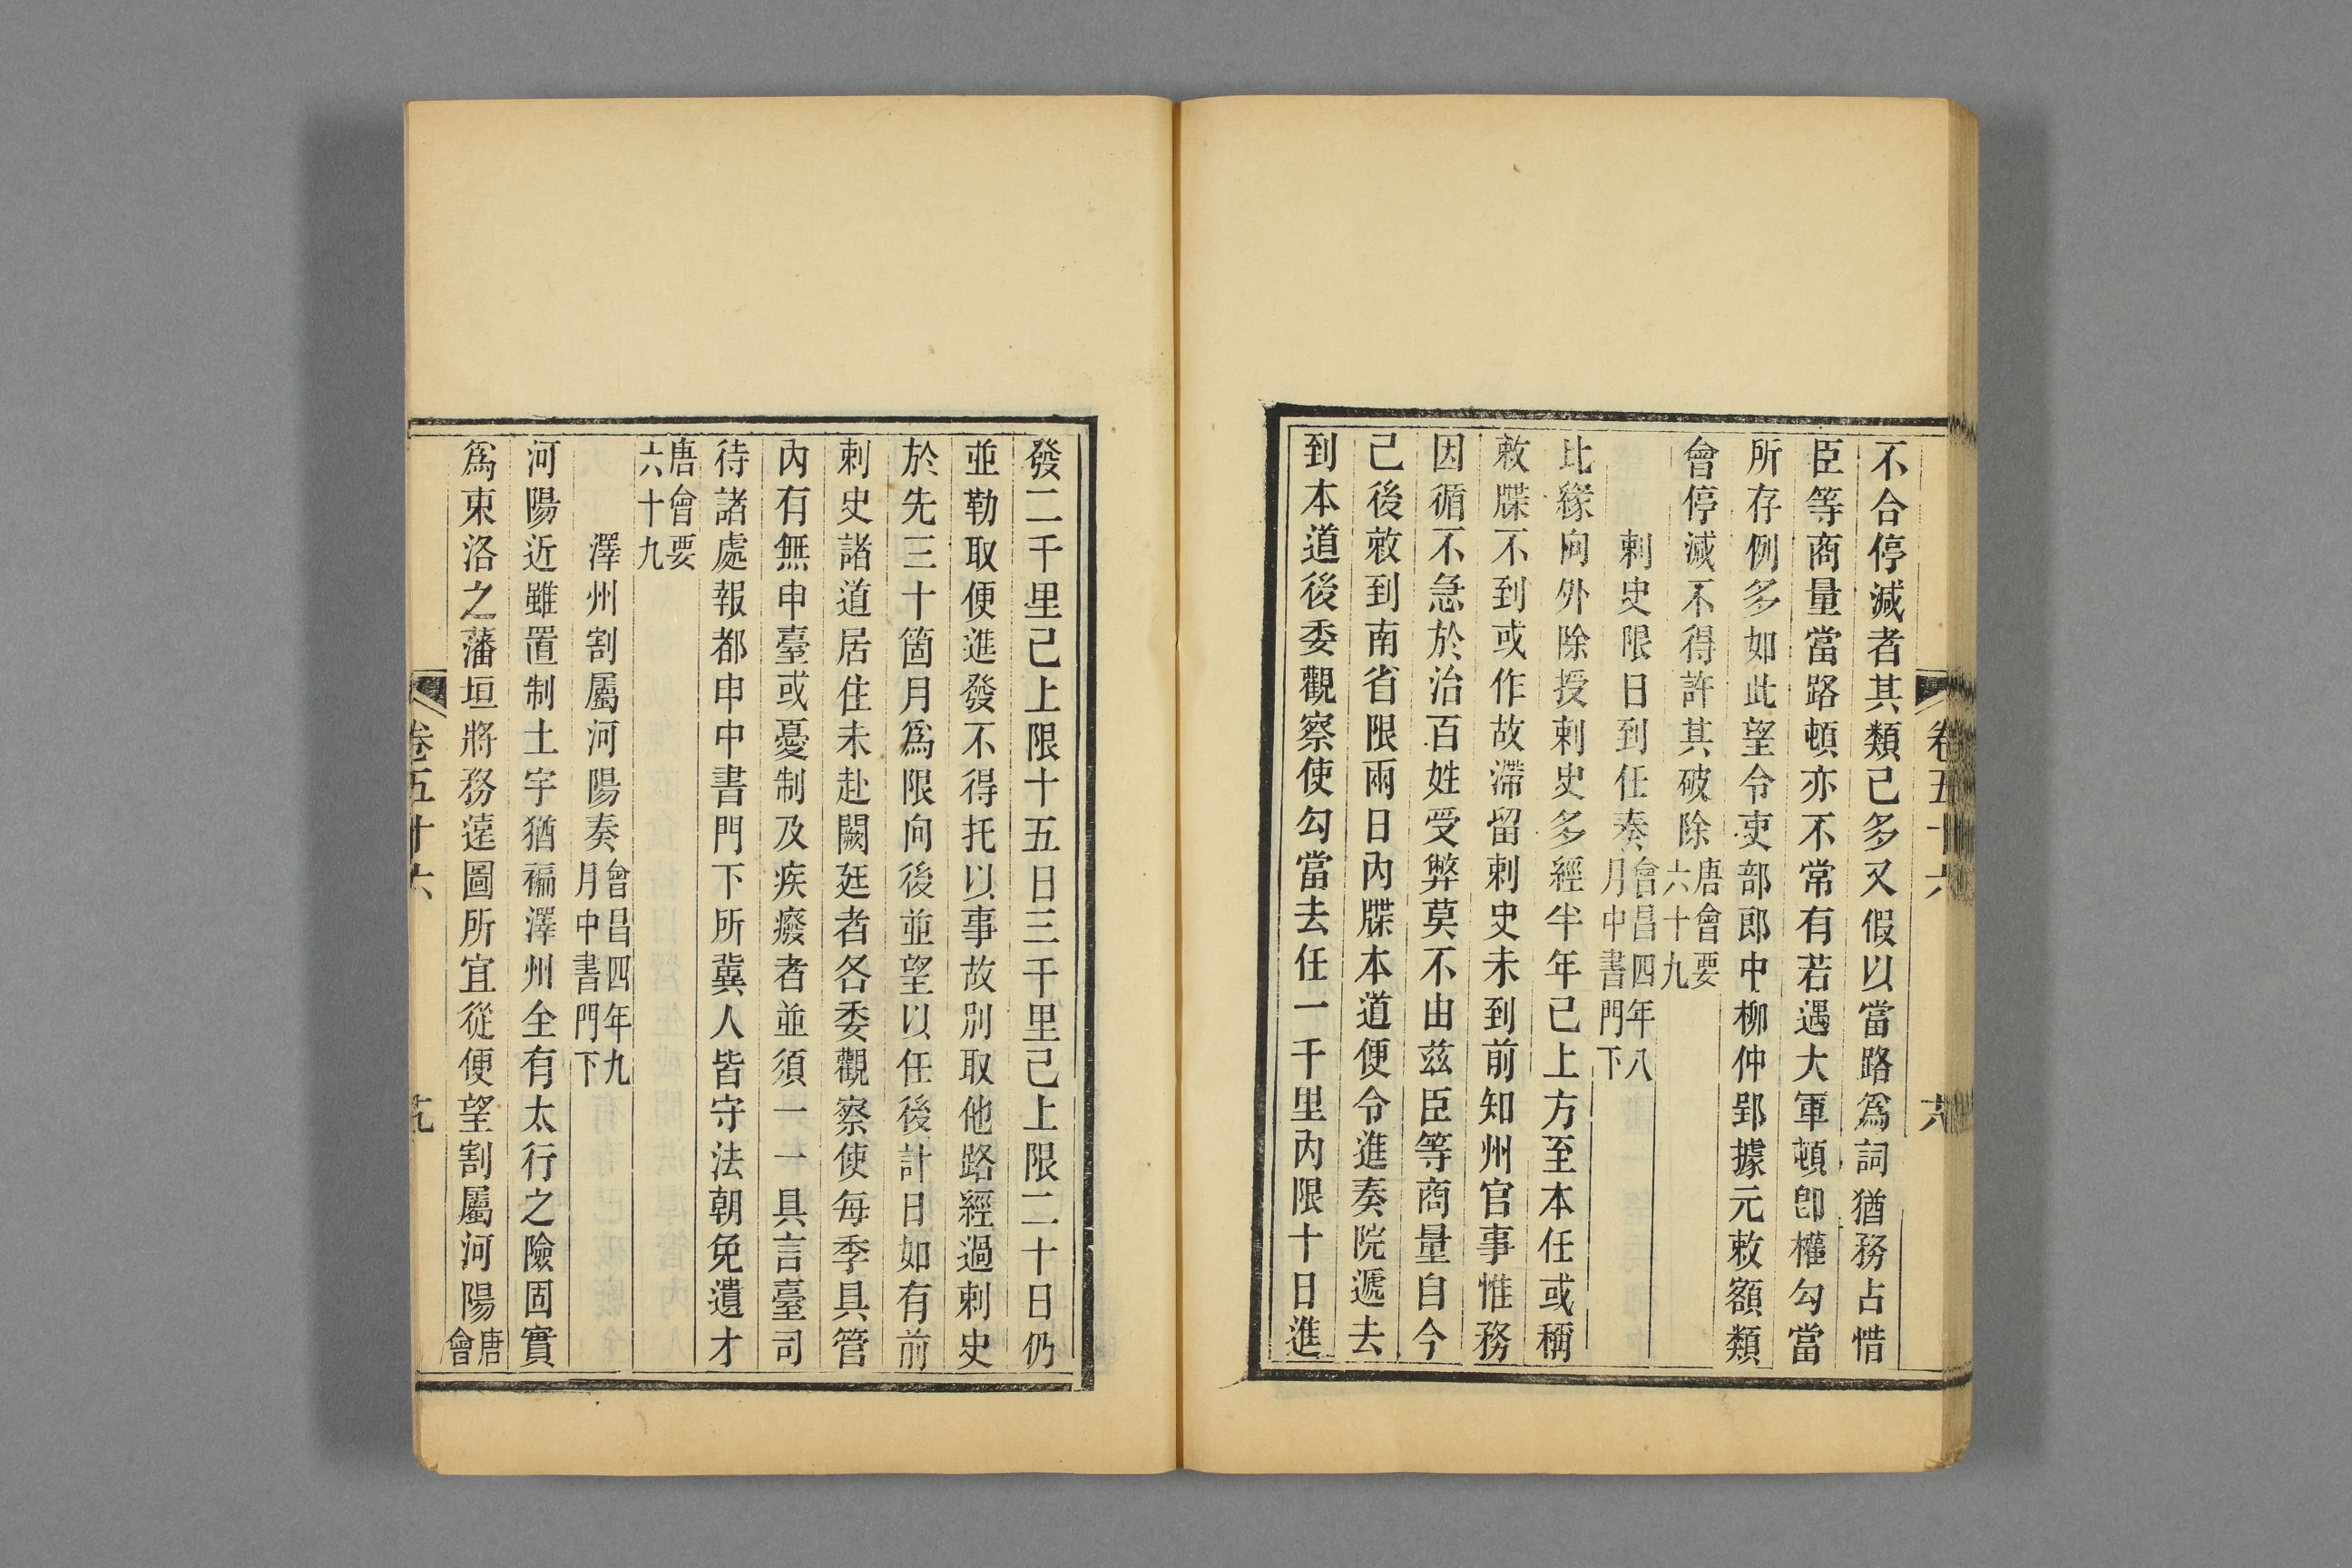 卷五十六
六
不合停減者其類已多又假以當路爲詞猶務占惜
臣等商量當路頓亦不常有若遇大軍頓卽權勾當
所存例多如此望令吏部郎中柳仲郢據元敕額類
會停減不得許其破除唐會要六十九
刺史限日到任奏會昌四年八月中書門下
比緣向外除授刺史多經半年已上方至本任或稱
敕牒不到或作故滯留刺史未到前知州官事惟務
因循不急於治百姓受弊莫不由兹臣等商量自今
己後敕到南省限兩日內牒本道便令進奏院遞去
到本道後委觀察使勾當去任一千里內限十日進
發二千里己上限十五日三千里己上限二十日仍
並勒取便進發不得托以事故別取他路經過刺史
於先三十箇月爲限向後並望以任後計日如有前
刺史諸道居住未赴闕廷者各委觀察使每季具管
內有無申臺或憂制及疾癈者並須一一具言臺司
待諸處報都申中書門下所冀人皆守法朝免遺才
唐會要六十九
澤州割屬河陽奏會昌四年九月中書門下
河陽近雖置制土宇猶褊澤州全有太行之險固實
爲東洛之藩垣將務遠圖所宜從便望割屬河陽唐會
卷五十六